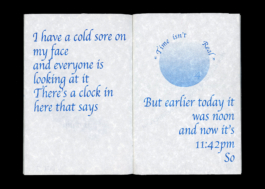 I have a cold sore on
my face
and everyone is
looking at it
There's a clock in
here that says
"Time isn't Real"
But earlier today it
was noon
and now it's
11:42pm
So